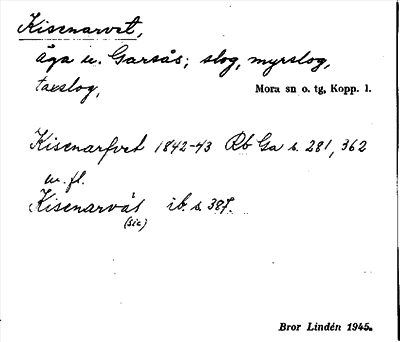 Kisenarvet,
äga u. Garsås; slog, myrslog,
taxslog,
Mora sn o. tg, Kopp. l.
Kisenarfvet 1842-43 Rb Ga s. 281, 362
m. fl.
Kisenarvåt ib. s. 387.
(sic)
Bror Lindén 1945.